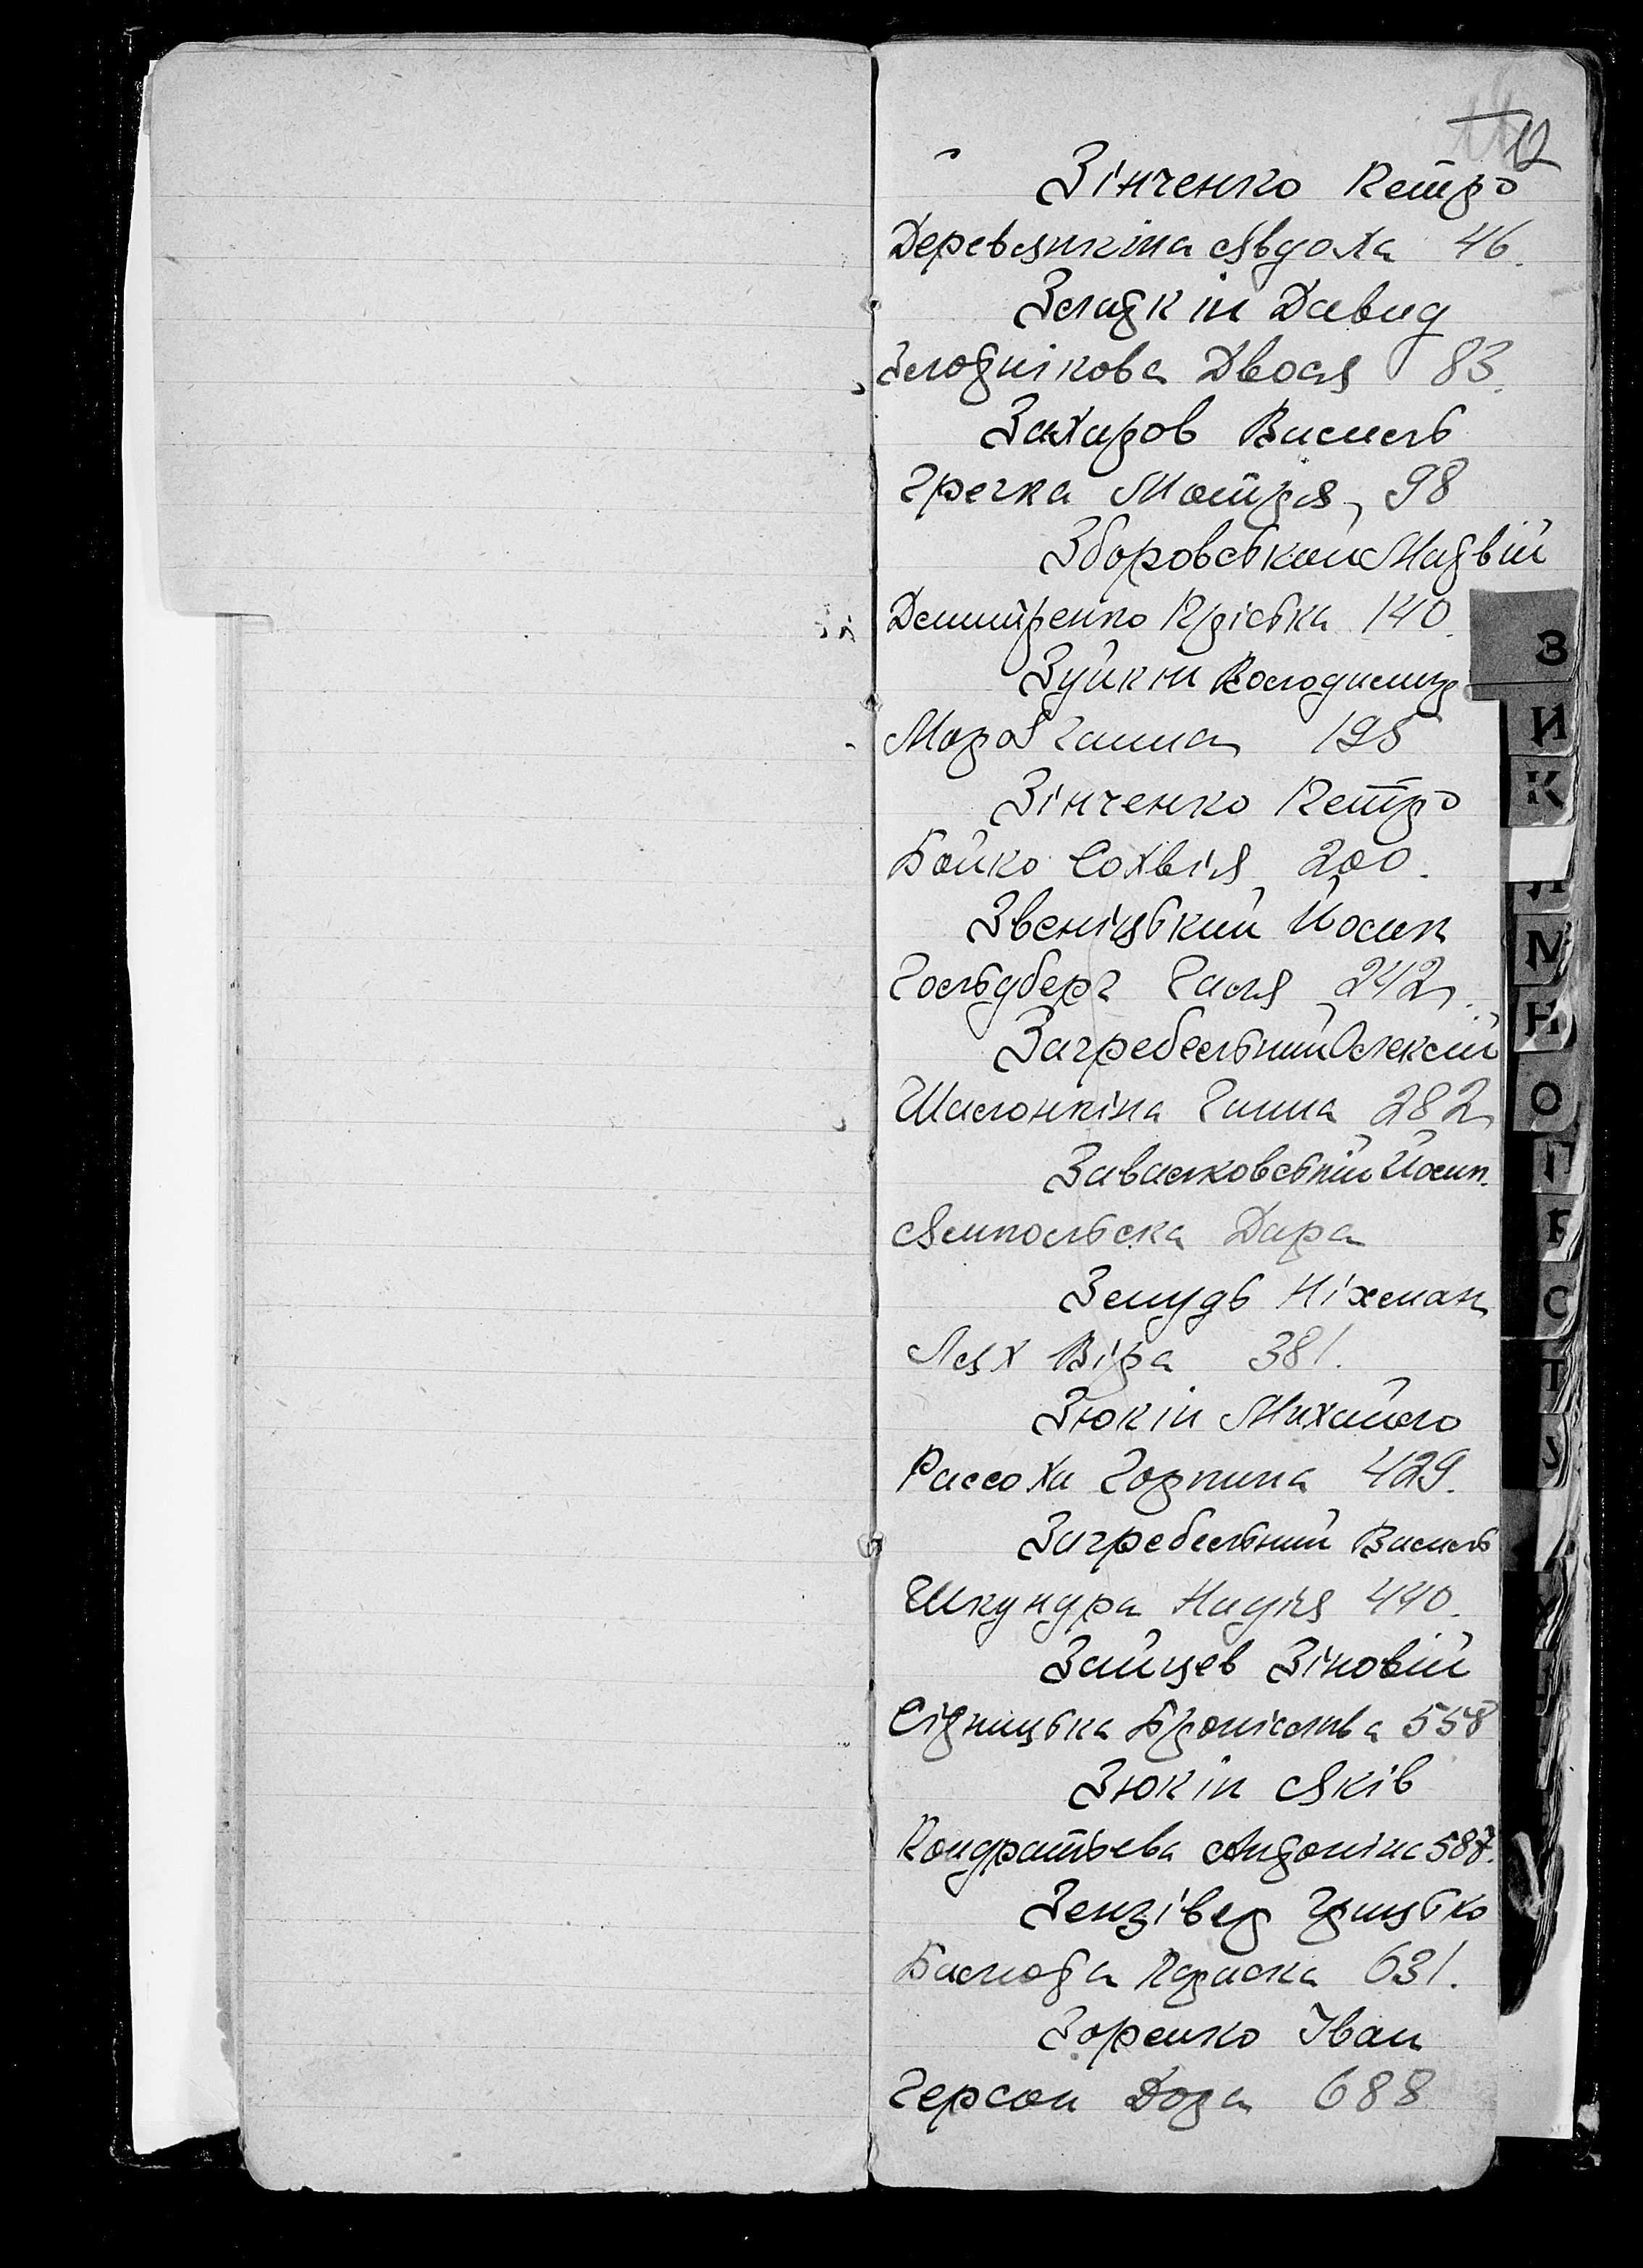 12
Зінченко Петро
Деревянкіна Явдоха 46.
Златкін Давид
Злотнікова Двося 83.
Захаров Василь
Гречка Мотря 98
Зборовський Матвій
Дмитренко Крістка 140.
Зуйкін Володимир
Мороз Ганна 195
Зінченко Петро
Бойко Сохвія 200.
Звеніцький Йосип
Гольдберг Гася 242.
Загребельний Олексій
Шалонкіна Ганна 282
Завалковський Йосип.
Ямпольська Дора
Змудь Ніхман
Лях Віра 381.
Зюкін Михайло
Рассоха Горпина 429.
Загребельний Василь
Шкундра Надія 440.
Зайцев Зіновій
Сітницька Броніслава 558
Зюкін Яків
Кондратьева Антоніна 587.
Зензівер Грицько
Балюта Параска 631.
Зоренко Іван
Герсон Дора 688
З
И
К
Л
М
Н
О
П
Р
С
Т
У
Х